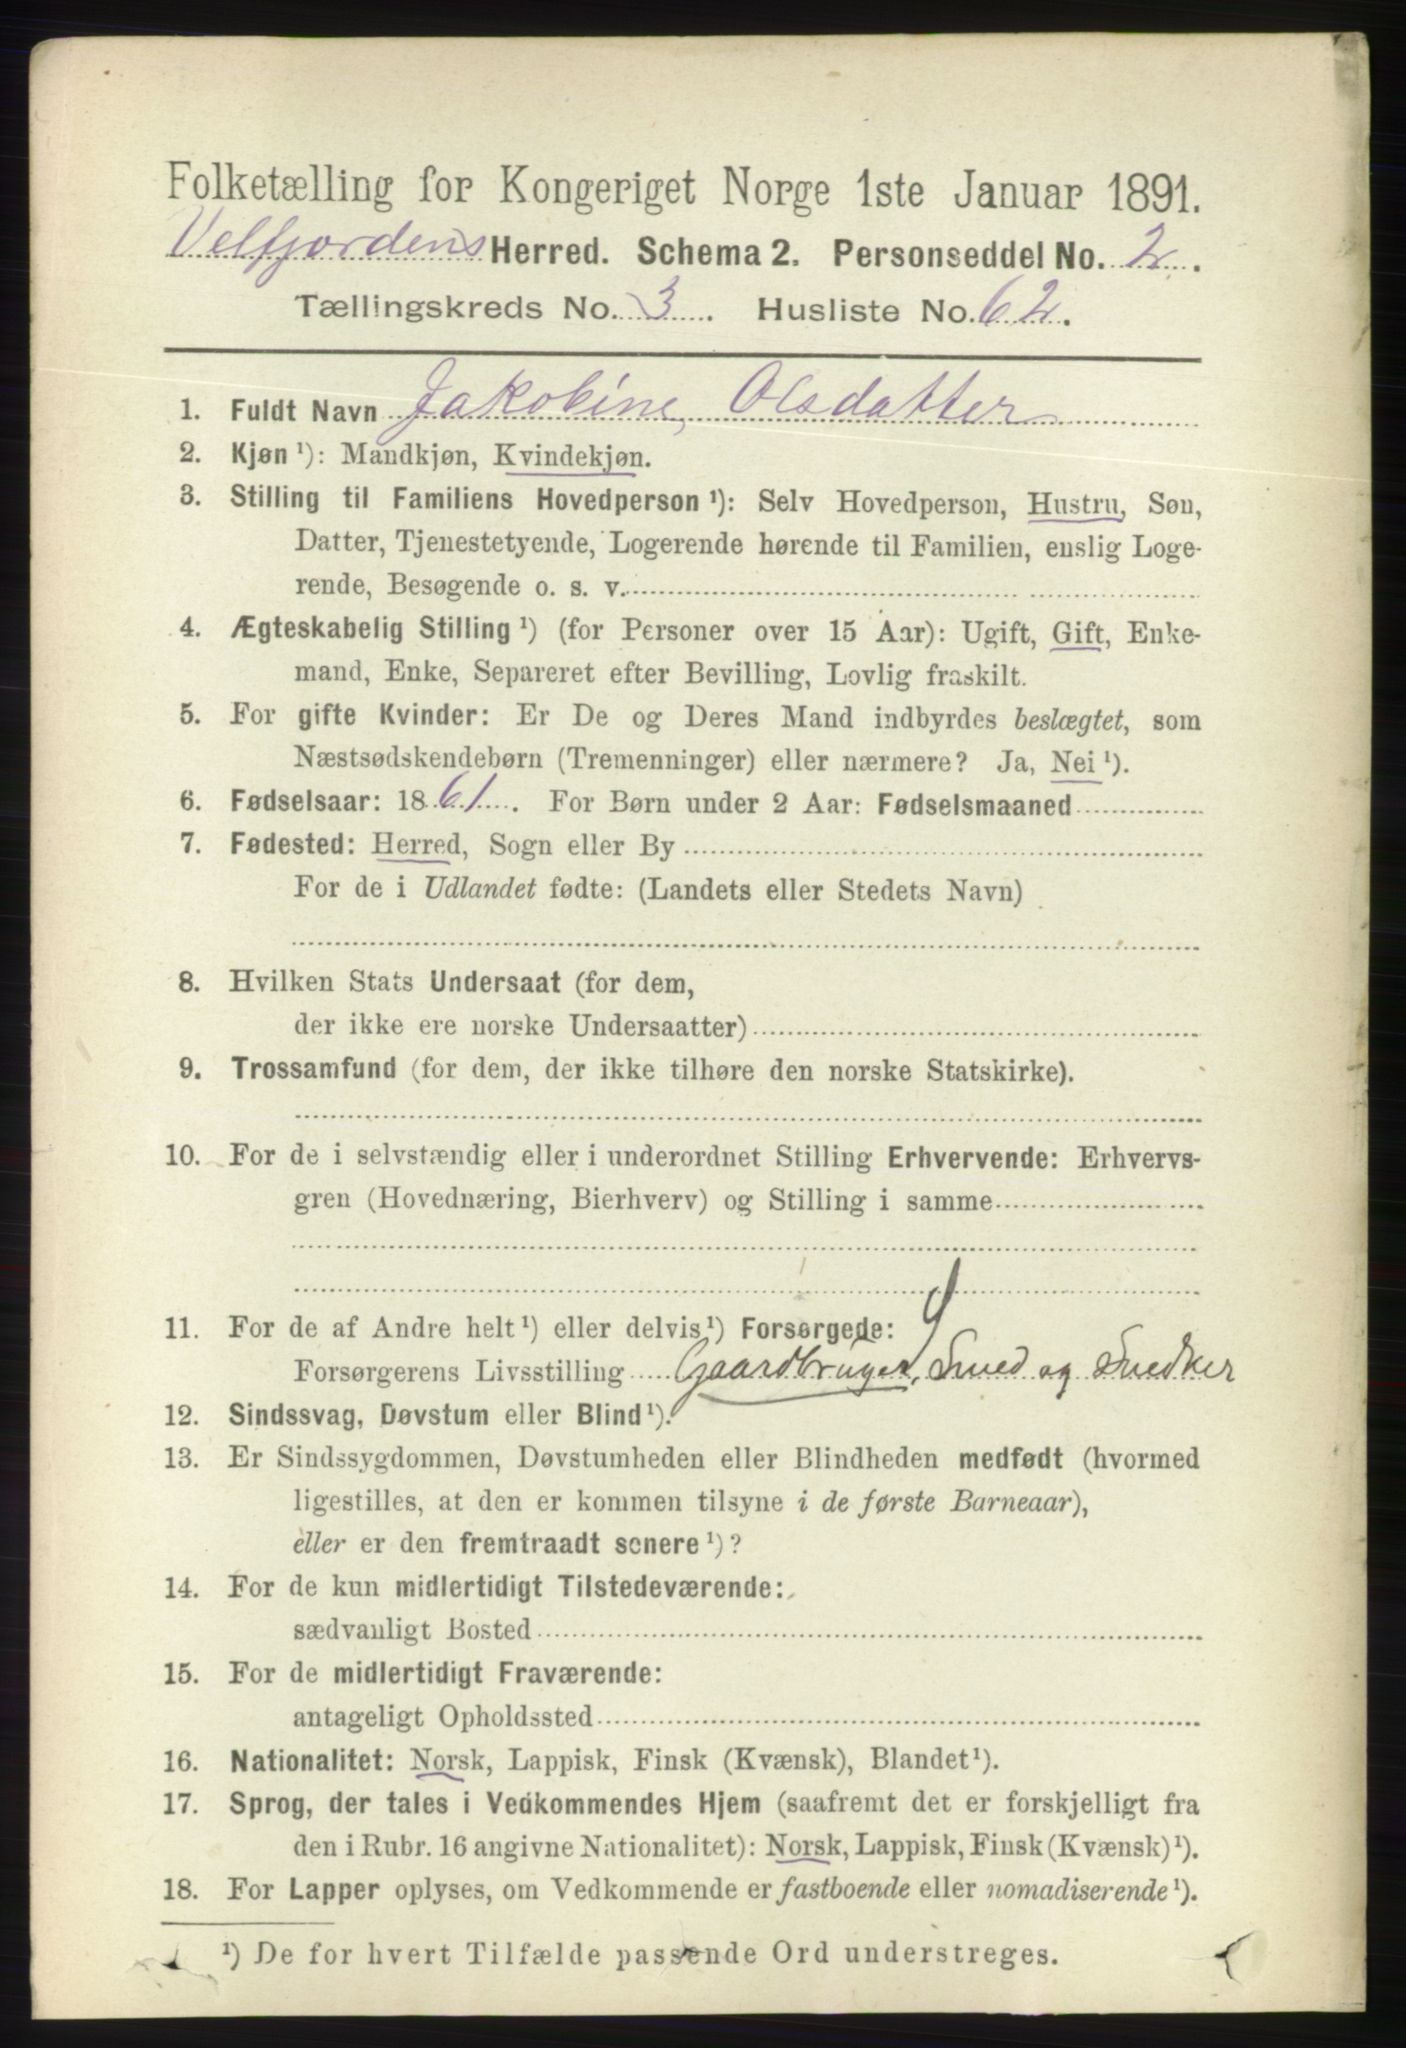 Folketælling for Kongeriget Norge 1ste Januar 1891.
Velfjordens Herred. Schema 2. Personseddel No. 2.
Tællingskreds No. 3. Husliste No. 62.
1. Fuldt Navn Jakobine, Olsdatter
2. Kjøn ¹): Mandkjøn, Kvindekjøn.
3. Stilling til Familiens Hovedperson ¹): Selv Hovedperson, Hustru, Søn,
Datter, Tjenestetyende, Logerende hørende til Familien, enslig Loge-
rende, Besøgende o. s. v.
4. Ægteskabelig Stilling ¹) (for Personer over 15 Aar): Ugift, Gift, Enke-
mand, Enke, Separeret efter Bevilling, Lovlig fraskilt.
5. For gifte Kvinder: Er De og Deres Mand indbyrdes beslægtet, som
Næstsødskendebørn (Tremenninger) eller nærmere? Ja, Nei ¹).
6. Fødselsaar: 1861. For Børn under 2 Aar: Fødselsmaaned
7. Fødested: Herred, Sogn eller By
For de i Udlandet fødte: (Landets eller Stedets Navn)
8. Hvilken Stats Undersaat (for dem,
der ikke ere norske Undersaatter)
9. Trossamfund (for dem, der ikke tilhøre den norske Statskirke).
10. For de i selvstændig eller i underordnet Stilling Erhvervende: Erhvervs-
gren (Hovednæring, Bierhverv) og Stilling i samme
11. For de af Andre helt ¹) eller delvis ¹) Forsørgede:
Forsørgerens Livsstilling Gaardbruger, Smed og Snedker
12. Sindssvag, Døvstum eller Blind ¹).
13. Er Sindssygdommen, Døvstumheden eller Blindheden medfødt (hvormed
ligestilles, at den er kommen tilsyne i de første Barneaar),
eller er den fremtraadt senere ¹)?
14. For de kun midlertidigt Tilstedeværende:
sædvanligt Bosted
15. For de midlertidigt Fraværende:
antageligt Opholdssted
16. Nationalitet: Norsk, Lappisk, Finsk (Kvænsk), Blandet ¹).
17. Sprog, der tales i Vedkommendes Hjem (saafremt det er forskjelligt fra
den i Rubr. 16 angivne Nationalitet): Norsk, Lappisk, Finsk (Kvænsk) ¹).
18. For Lapper oplyses, om Vedkommende er fastboende eller nomadiserende ¹).
¹) De for hvert Tilfælde passende Ord understreges.